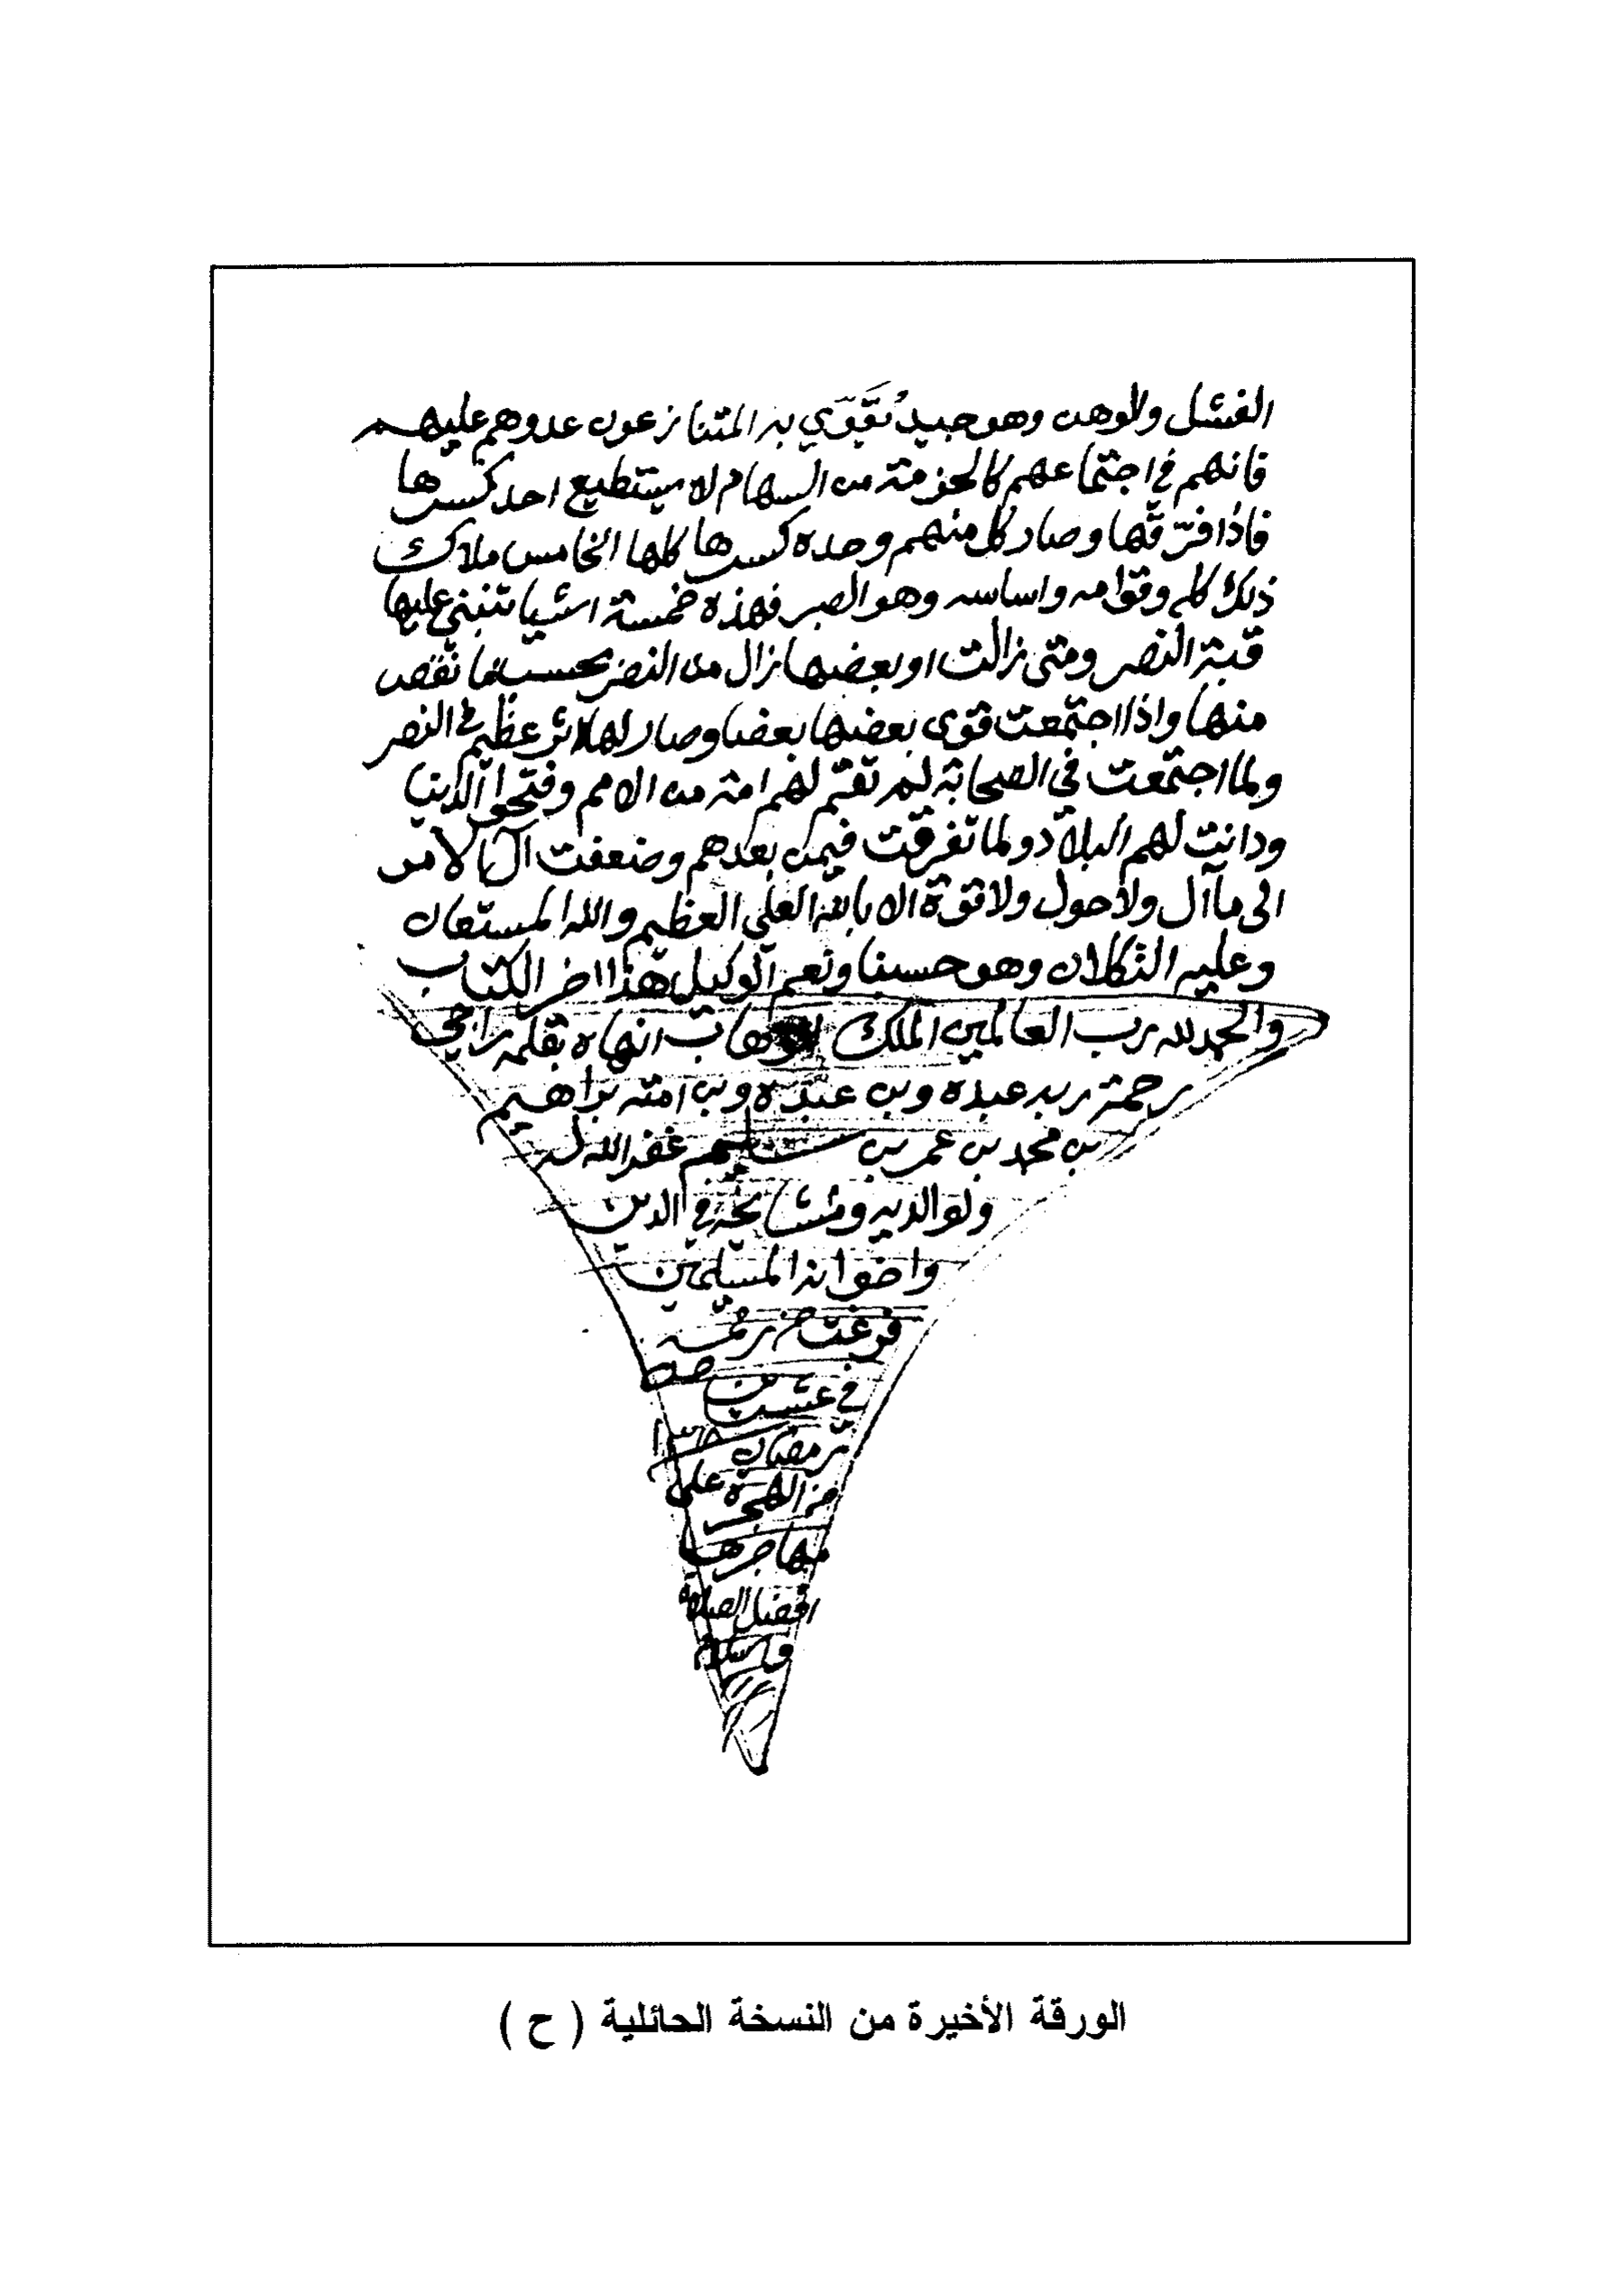 الفشل والوهن وهو جند يُقَوّي به المتنازعون عدوهم عليهم
فانهم في اجتماعهم كالحزمة من السهام لا يستطيع احد كسرها
فاذا فرّقها وصار كل منهم وحده كسرها كلها الخامس ملاك
ذلك كله وقوامه واساسه وهو الصبر فهذه خمسة اشيا تنبني عليها
قبة النصر ومتى زالت او بعضها زال من النصر بحسب ما نقص
منها واذا اجتمعت قوى بعضها بعضا وصار لها اثر عظيم في النصر
ولما اجتمعت في الصحابة لم تقم لهم امة من الامم وفتحوا الدنيا
ودانت لهم البلاد ولما تفرقت فيمن بعدهم وضعفت ال بالامر
الى ما آل ولا حول ولا قوة الا بالله العلي العظيم والله المستعان
وعليه التكلان وهو حسبنا ونعم الوكيل هذا اخر الكتاب
والحمد لله رب العالمين الملك الوهاب انهاه بقلمه راجي
رحمة ربه عبده وبن عبده وبن امته براهيم
بن محمد بن عمر بن سليم غفر الله له
ولوالديه ومشايخه في الدين
واخوانه المسلمين
فرغت من رقمه
في عشرين
رمضان
من الهجرة على
مهاجرها
افضل الصلاة
والسلام
الورقة الأخيرة من النسخة الحائلية ( ح )